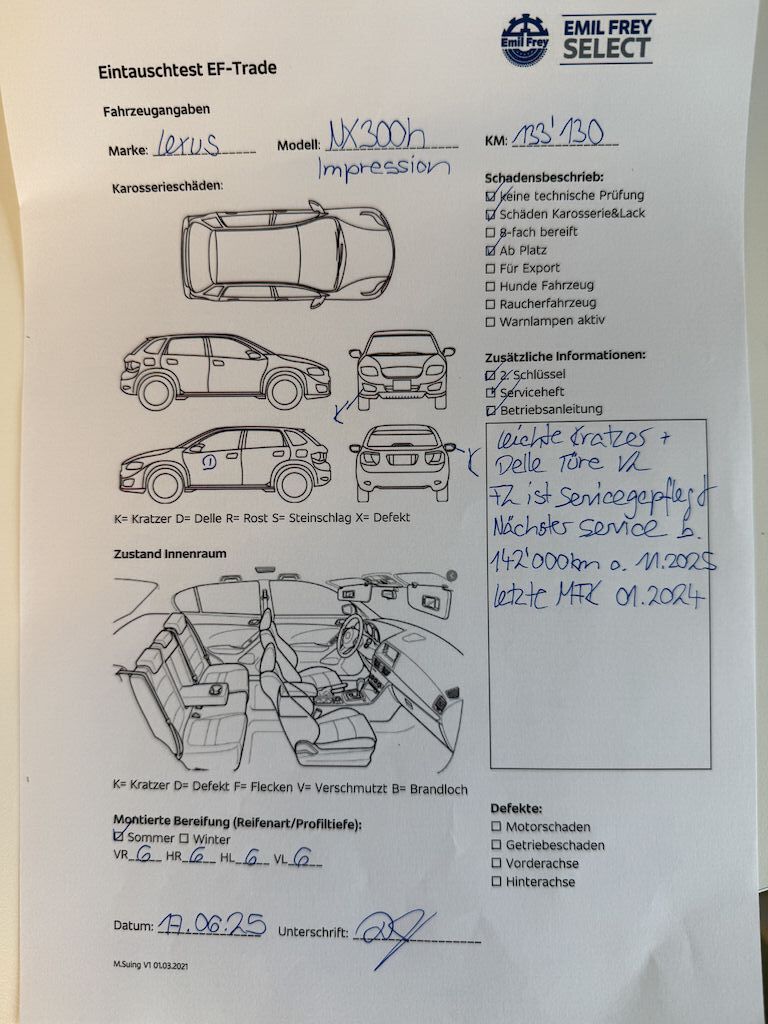 Emil Frey
EMIL FREY
SELECT
Eintauschtest EF-Trade
Fahrzeugangaben
Marke: Lexus Modell: NX300h KM: 133'130
Impression
Karosserieschäden:
Schadensbeschrieb:
☑ keine technische Prüfung
☑ Schäden Karosserie&Lack
☐ 8-fach bereift
☑ Ab Platz
☐ Für Export
☐ Hunde Fahrzeug
☐ Raucherfahrzeug
☐ Warnlampen aktiv
Zusätzliche Informationen:
☑ 2. Schlüssel
☑ Serviceheft
☑ Betriebsanleitung
K
K
D
leichte Kratzer +
Delle Türe VL
FZ ist Servicegepflegt
Nächster Service b.
142'000km o. 11.2025
letzte MFK 01.2024
K= Kratzer D= Delle R= Rost S= Steinschlag X= Defekt
Zustand Innenraum
K= Kratzer D= Defekt F= Flecken V= Verschmutzt B= Brandloch
Montierte Bereifung (Reifenart/Profiltiefe):
☑ Sommer ☐ Winter
VR 6 HR 6 HL 6 VL 6
Defekte:
☐ Motorschaden
☐ Getriebeschaden
☐ Vorderachse
☐ Hinterachse
Datum: 17.06.25 Unterschrift:
M.Suing V1 01.03.2021